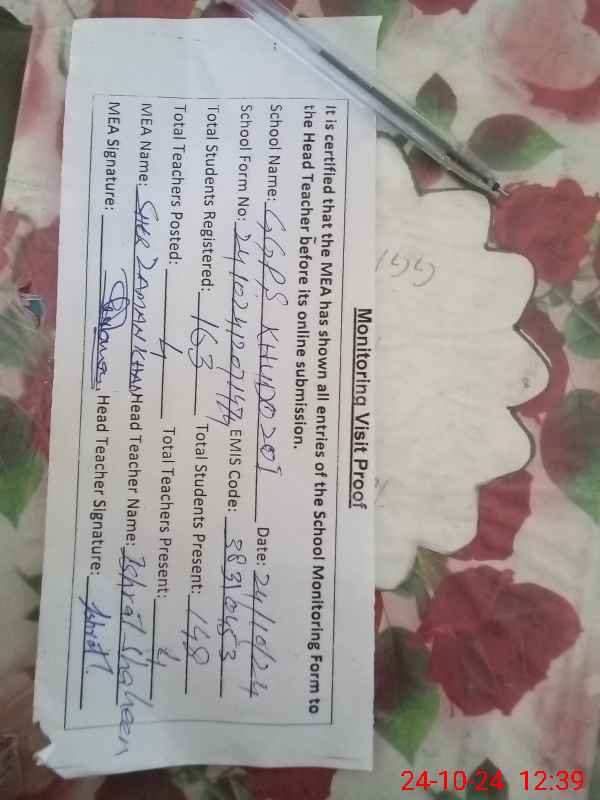 Monitoring Visit Proof
It is certified that the MEA has shown all entries of the School Monitoring Form to
the Head Teacher before its online submission.
School Name: GGPS KHUDO ZOI Date: 24/10/24
School Form No: EMIS Code: 38310453
Total Students Registered: 163 Total Students Present: 148
Total Teachers Posted: 4 Total Teachers Present: 4
MEA Name: SHER ZAMAN KHAN Head Teacher Name: Ishrat Shaheen
MEA Signature: Head Teacher Signature: Ishrat
24-10-24 12:39